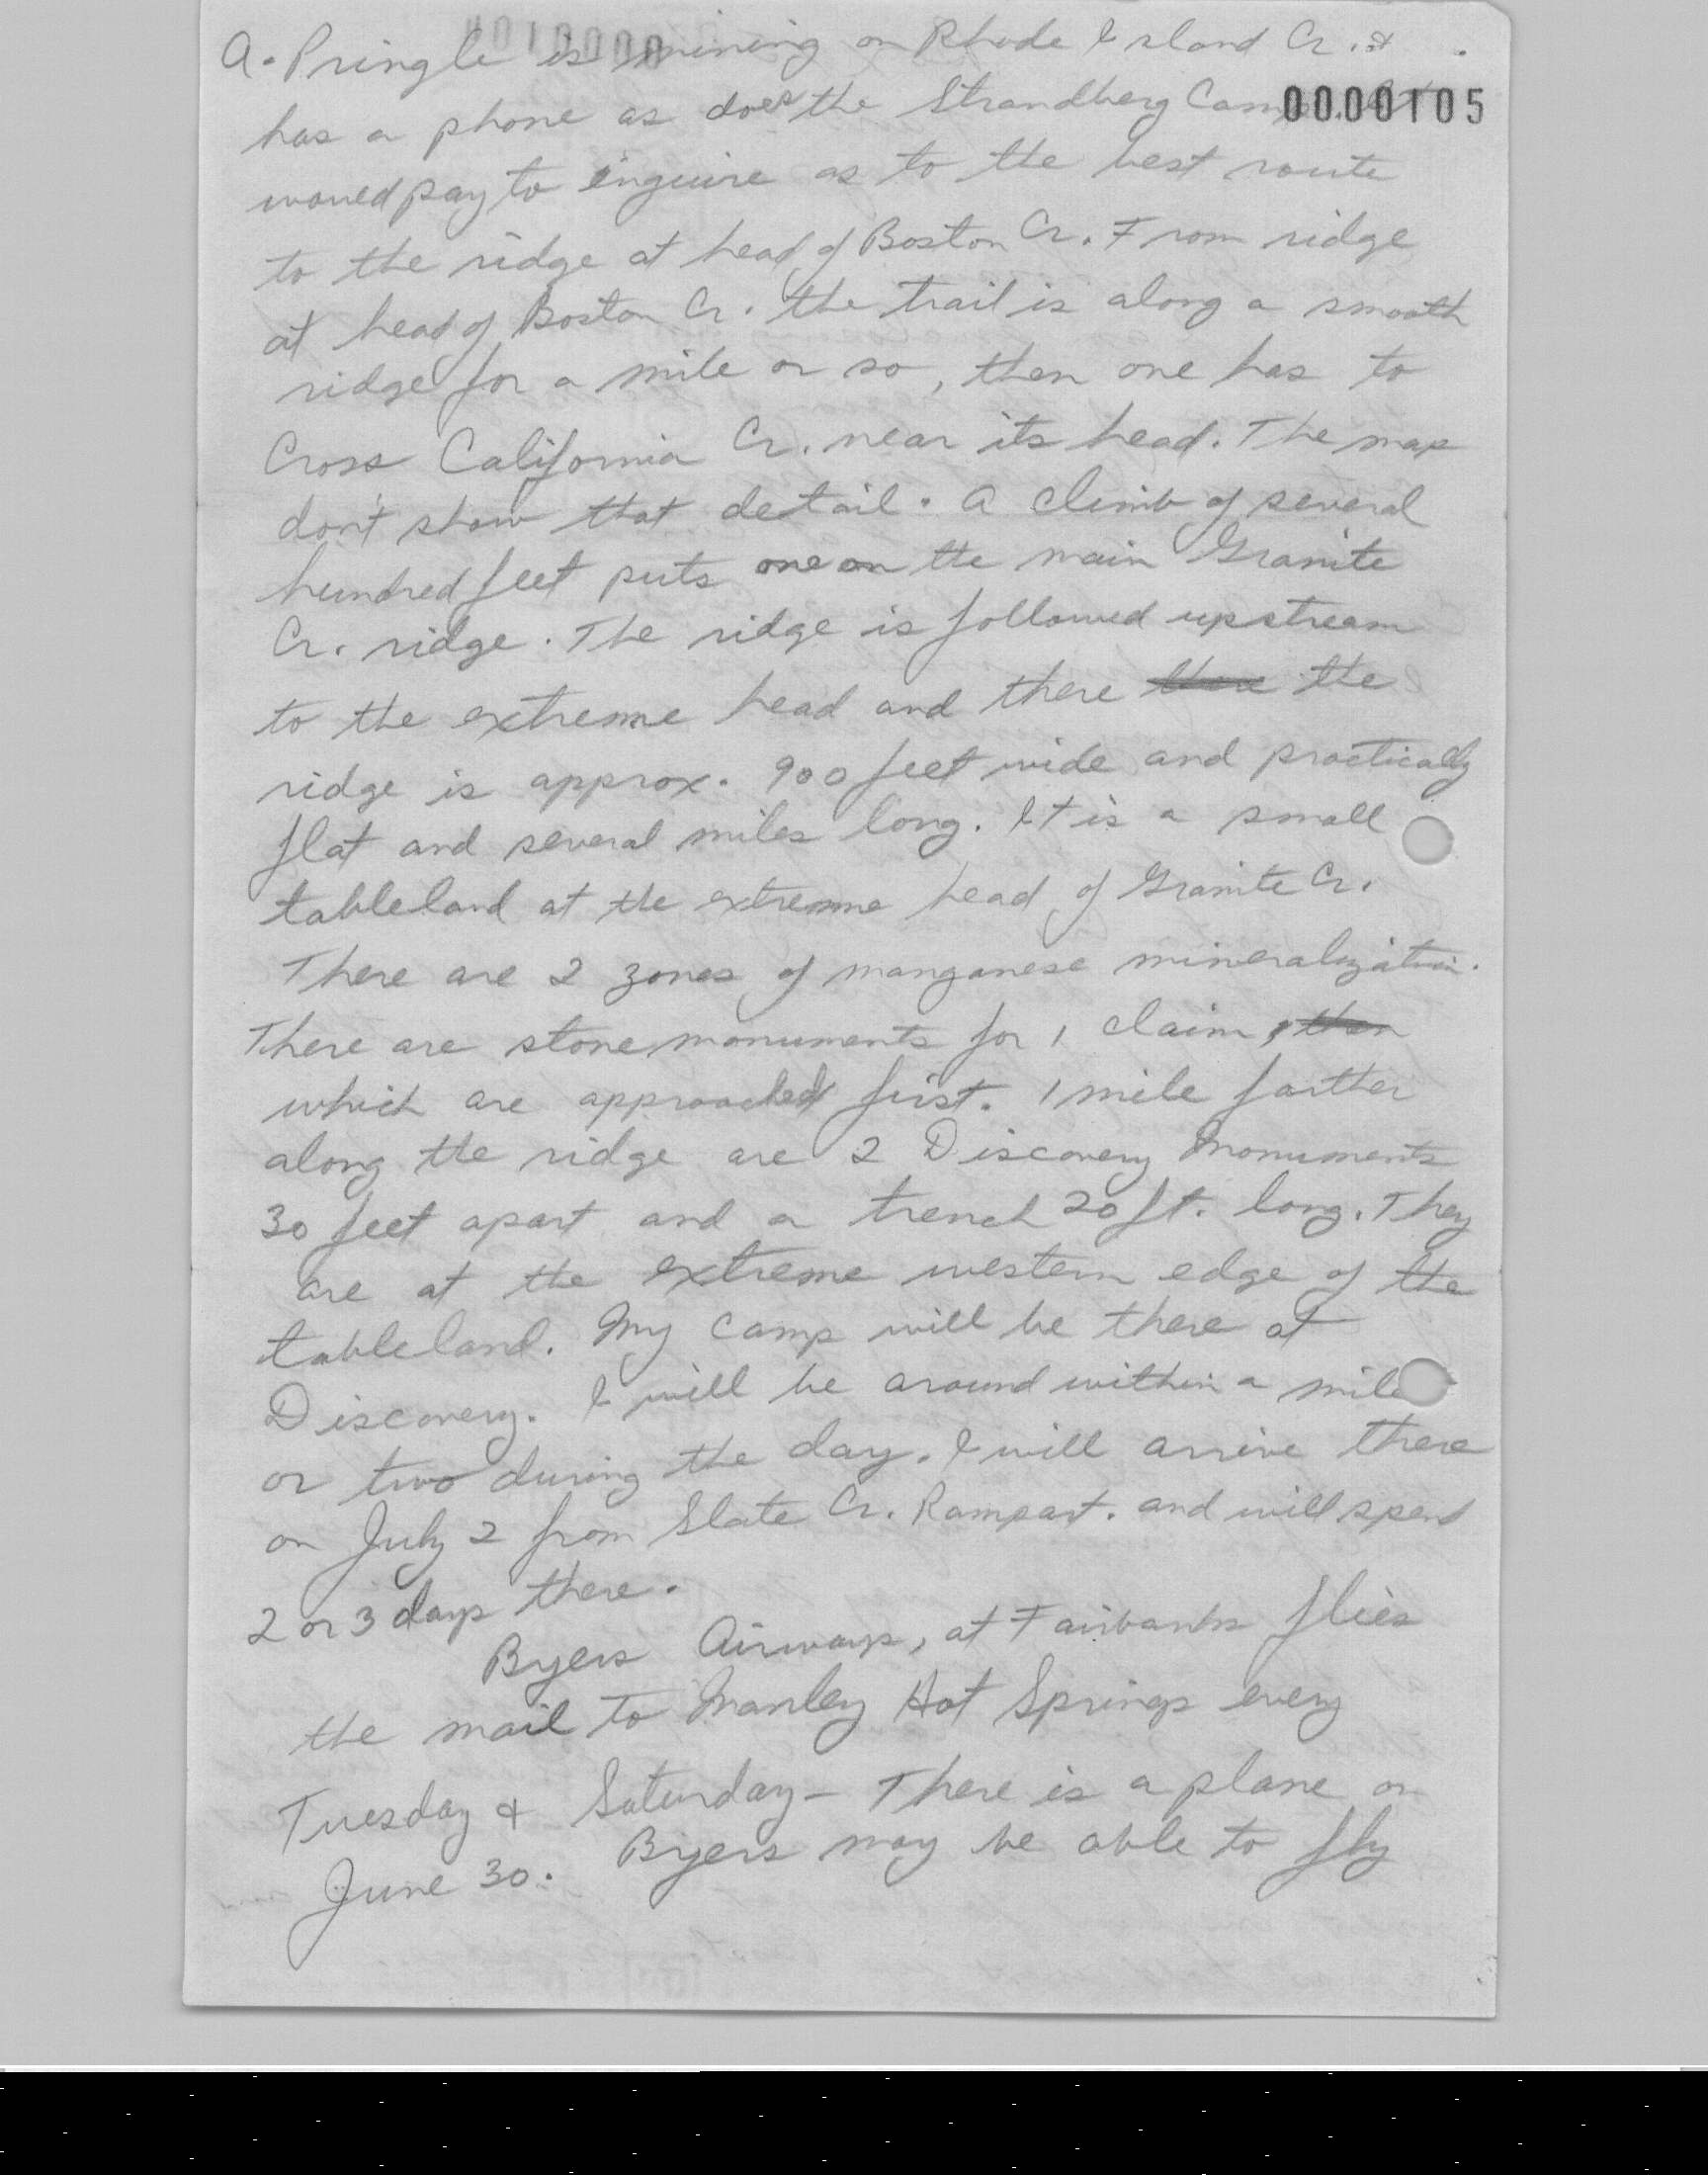 A. Pringle is mining on Rhode Island Cr. &
0000105
has a phone as does the Strandberg Camp. It
would pay to inquire as to the best route
to the ridge at head of Boston Cr. From ridge
at head of Boston Cr. the trail is along a smooth
ridge for a mile or so, then one has to
Cross California Cr. near its head. The map
don't show that detail. A climb of several
hundred feet puts one on the main Granite
Cr. ridge. The ridge is followed upstream
to the extreme head and there the
ridge is approx. 900 feet wide and practically
flat and several miles long. It is a small
tableland at the extreme head of Granite Cr.
There are 2 zones of manganese mineralization.
There are stone monuments for 1 claim, then
which are approached first. 1 mile farther
along the ridge are 2 Discovery Monuments
30 feet apart and a trench 20 ft. long. They
are at the extreme western edge of the
tableland. My Camp will be there at
Discovery. I will be around within a mile
or two during the day. I will arrive there
on July 2 from Slate Cr. Rampart. and will spend
2 or 3 days there.
Byers Airways, at Fairbanks flies
the mail to Manley Hot Springs every
Tuesday & Saturday – There is a plane on
June 30. Byers may be able to fly